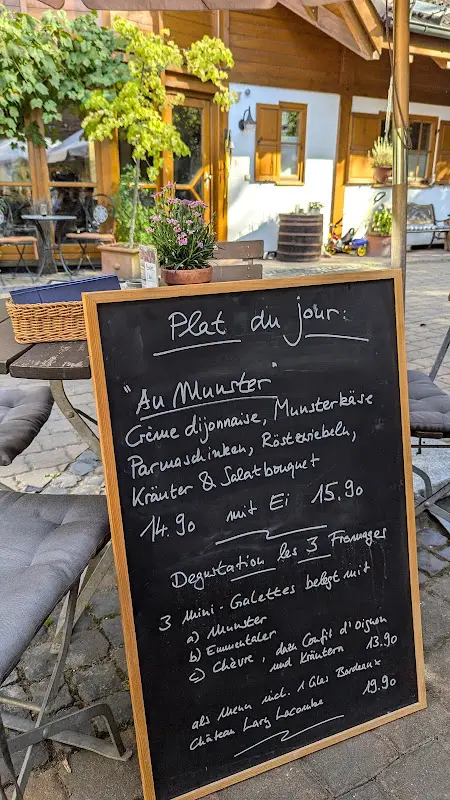 Plat du jour:
"Au Munster"
Crème dijonnaise, Munsterkäse
Parmaschinken, Röstzwiebeln,
Kräuter & Salatbouquet
14.90 mit Ei 15.90
Degustation les 3 Fromages
3 Mini-Galettes belegt mit
a) Munster
b) Emmentaler
c) Chèvre, dazu Confit d'Oignon
und Kräutern 13.90
als Menu incl. 1 Glas Bordeaux
Château Lary Lacombe 19.90